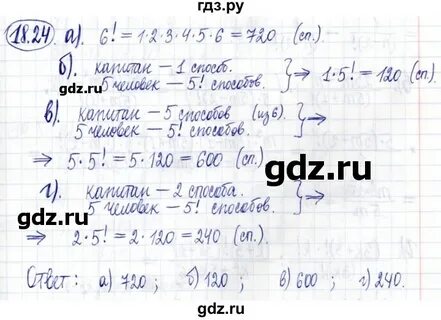 гдз.ру
18.24 а). 6! = 1·2·3·4·5·6 = 720 (сп.)
б). капитан – 1 способ.
5 человек – 5! способов. } ⇒ 1·5! = 120 (сп.)
в). капитан – 5 способов (из 6)
5 человек – 5! способов. } ⇒
⇒ 5·5! = 5·120 = 600 (сп.)
gdz.ru
г). капитан – 2 способа.
5 человек – 5! способов. } ⇒
gdz.ru
⇒ 2·5! = 2·120 = 240 (сп.)
Ответ: а) 720; б) 120; в) 600; г) 240.
gdz.ru